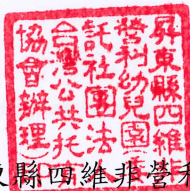 屏東縣四維
營利幼兒園
託社團法
台灣公共托
協會辦理
東縣四維非營